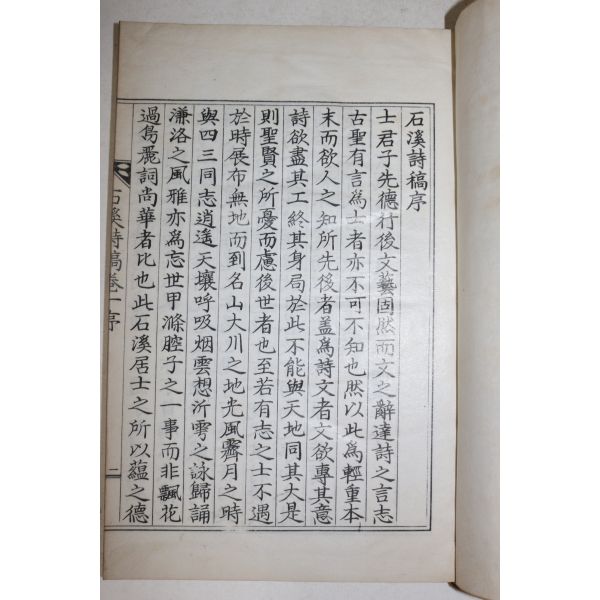 石溪詩稿序
士君子先德行後文藝固然而文之辭達詩之言志
古聖有言爲士者亦不可不知也然以此爲輕重本
末而欲人之知所先後者盖爲詩文者文欲專其意
詩欲盡其工終其身局於此不能與天地同其大是
則聖賢之所憂而慮後世者也至若有志之士不遇
於時展布無地而到名山大川之地光風霽月之時
與四三同志逍遙天壤呼吸烟雲想沂雩之詠歸誦
濂洛之風雅亦爲忘世甲滌腔子之一事而非飄花
過鳥麗詞尚華者比也此石溪居士之所以蘊之德
石溪詩稿卷一序